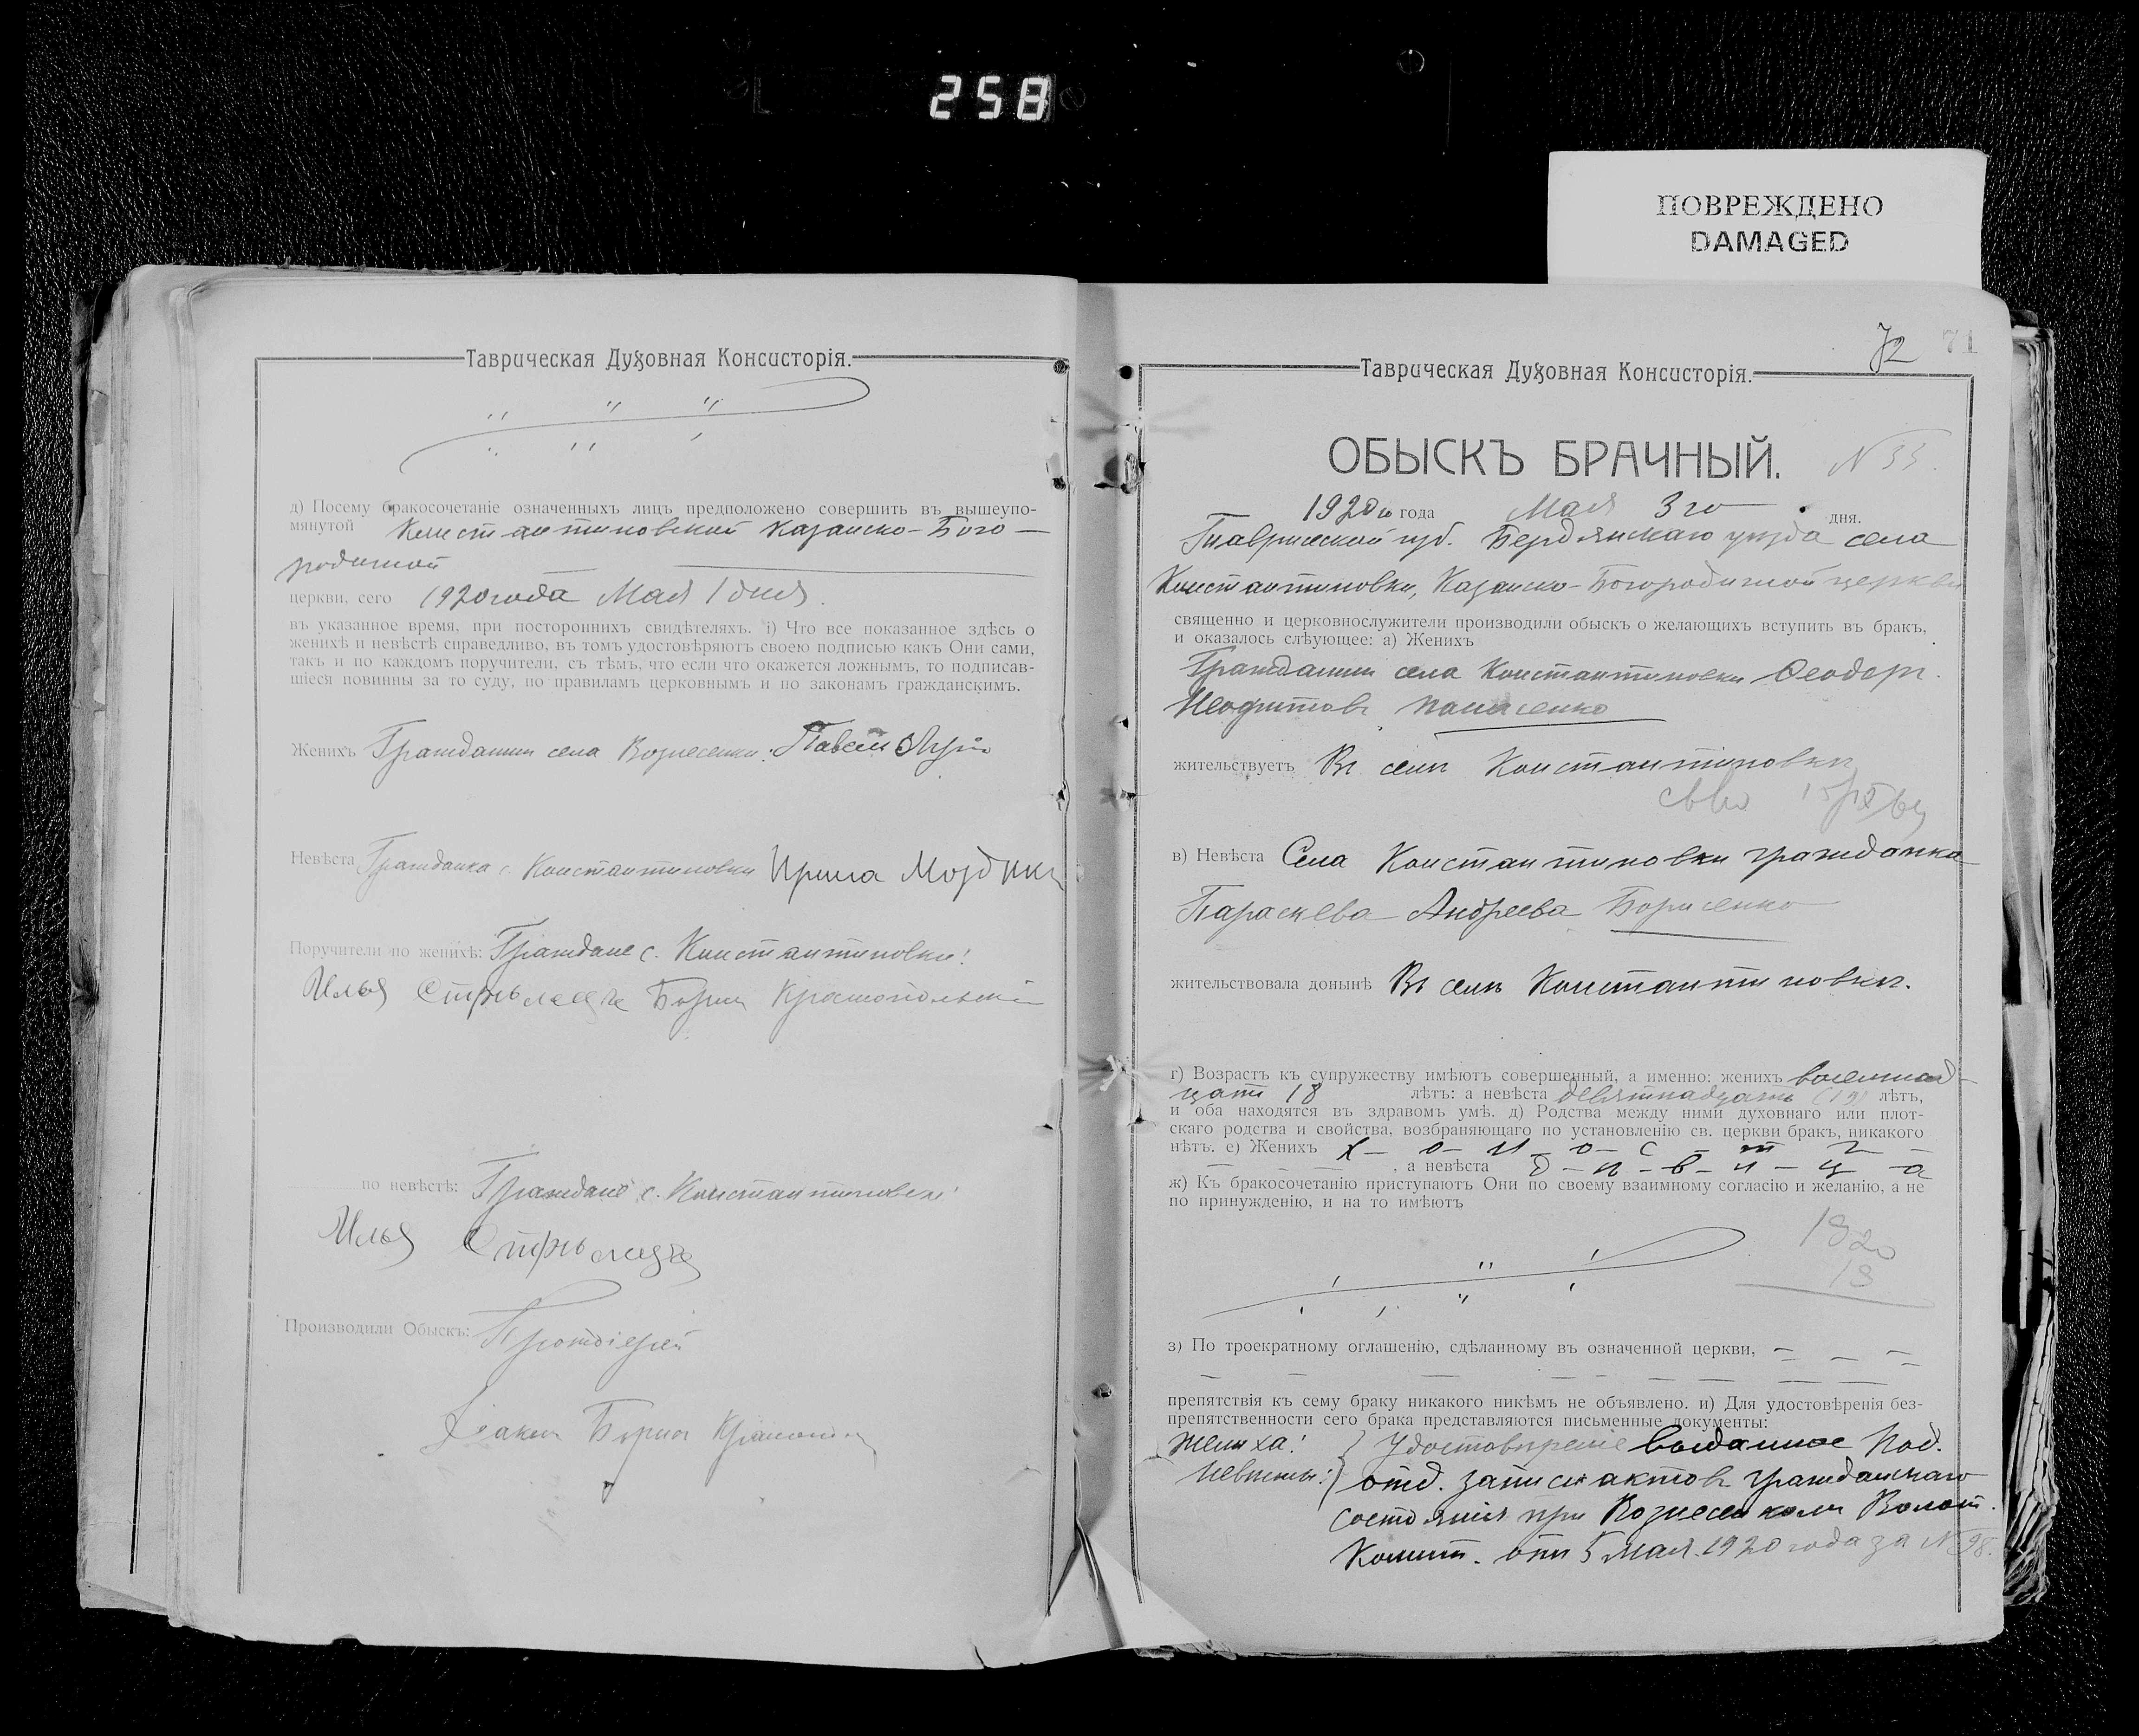 258
ПОВРЕЖДЕНО
DAMAGED
Таврическая Духовная Консисторія.
д) Посему бракосочетаніе означенныхъ лицъ предположено совершить въ вышеупо-
мянутой Константиновской Казанско-Бого-
родичной
церкви, сего 1920 года Мая 1 дня.
въ указанное время, при постороннихъ свидѣтеляхъ. і) Что все показанное здѣсь о
женихѣ и невѣстѣ справедливо, въ томъ удостовѣряютъ своею подписью какъ Они сами,
такъ и по каждомъ поручители, съ тѣмъ, что если что окажется ложнымъ, то подписав-
шіеся повинны за то суду, по правиламъ церковнымъ и по законамъ гражданскимъ.
Женихъ Гражданинъ села Вознесенки: Павелъ
Невѣста Гражданка с. Константиновки Ирина
Поручители по женихѣ: Граждане с. Константиновки:
Илья Стрѣлецъ Борис Краснопольскій
по невѣстѣ: Граждане с. Константиновки:
Илья Стрѣлецъ
Производили Обыскъ: Протоіерей
Діаконъ Борисъ
72 71
Таврическая Духовная Консисторія.
ОБЫСКЪ БРАЧНЫЙ. N 33.
1920 го года Мая 3 го дня.
Таврической губ. Бердянскаго уѣзда села
Константиновки, Казанско-Богородичной церкви
священно и церковнослужители производили обыскъ о желающихъ вступить въ бракъ,
и оказалось слѣующее: а) Женихъ
Гражданинъ села Константиновки Ѳеодоръ
Неофитовъ Панасенко
жительствуетъ Въ селѣ Константиновкѣ
в) Невѣста Села Константиновки гражданка
Параскева Андреева Борисенко
жительствовала донынѣ Въ селѣ Константиновкѣ.
г) Возрастъ къ супружеству имѣютъ совершенный, а именно: женихъ восемнад-
цать 18 лѣтъ: а невѣста девятнадцать (19) лѣтъ,
и оба находятся въ здравомъ умѣ. д) Родства между ними духовнаго или плот-
скаго родства и свойства, возбраняющаго по установленію св. церкви бракъ, никакого
нѣтъ. е) Женихъ х-о-л-о-с-т-ъ-
, а невѣста д-ѣ-в-и-ц-а
ж) Къ бракосочетанію приступаютъ Они по своему взаимному согласію и желанію, а не
по принужденію, и на то имѣютъ
1920
18
з) По троекратному оглашенію, сдѣланному въ означенной церкви,
препятствія къ сему браку никакого никѣмъ не объявлено. и) Для удостовѣренія без-
препятственности сего брака представляются письменные документы:
Жениха: } Удостовѣреніе выданное Под.
Невѣсты: } отд. записи актовъ гражданскаго
состоянія при Вознесенскомъ Волост.
Комит. отъ 5 Мая 1920 года за N 98.